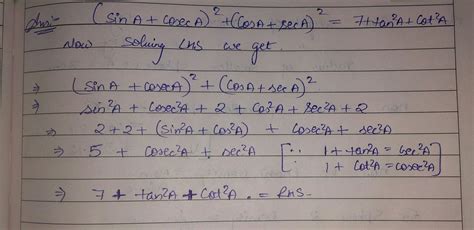 Ans:- (sinA + cosecA)² + (cosA + secA)² = 7 + tan²A + Cot²A
Now Solving LHS we get.
⇒ (sinA + cosecA)² + (cosA + secA)²
⇒ sin²A + Cosec²A + 2 + Cos²A + Sec²A + 2
⇒ 2 + 2 + (Sin²A + Cos²A) + Cosec²A + Sec²A
⇒ 5 + Cosec²A + sec²A [∵ 1 + tan²A = sec²A
∵ 1 + Cot²A = cosec²A]
⇒ 7 + tan²A + Cot²A . = RHS.